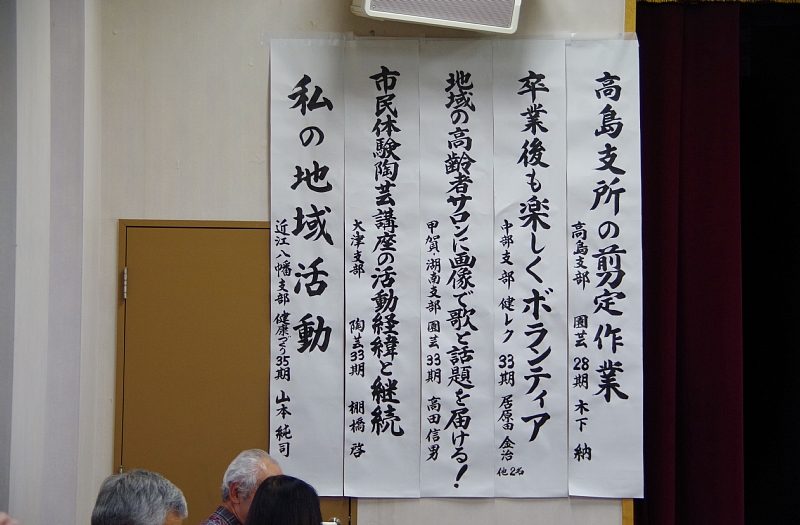 高島支所の剪定作業
高島支部 園芸28期 木下 納
卒業後も楽しくボランティア
中部支部 健レク 33期 居原田 金治 他2名
地域の高齢者サロンに画像で歌と話題を届ける!
甲賀・湖南支部 園芸33期 高田信男
市民体験陶芸講座の活動経緯と継続
大津支部 陶芸33期 棚橋 啓
私の地域活動
近江八幡支部 健康づくり35期 山本 純司